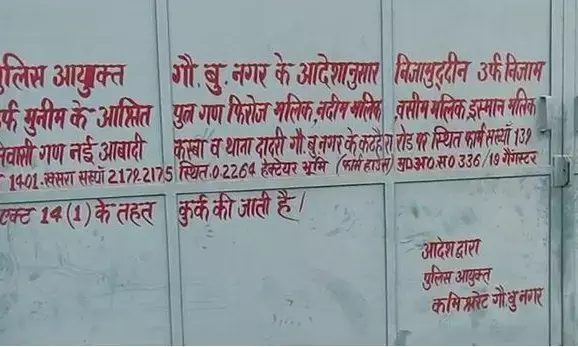 पुलिस आयुक्त गौ. बु. नगर के आदेशानुसार निजामुद्दीन उर्फ निजाम
उर्फ मुनीम के आश्रित पुत्र गण फिरोज मलिक, नदीम मलिक, वसीम मलिक, इस्मान मलिक
निवासी गण नई आबादी कस्बा व थाना दादरी गौ. बु. नगर के कटहैरा रोड पर स्थित फार्म संख्या 139
1401. खसरा संख्या 2172, 2175 स्थित 0.2264 हेक्टेयर भूमि (फार्म हाउस) मु०अ०स० 336/19 गैंगस्टर
एक्ट 14(1) के तहत कुर्क की जाती है।
आदेश द्वारा
पुलिस आयुक्त
कमिश्नरेट गौ. बु नगर